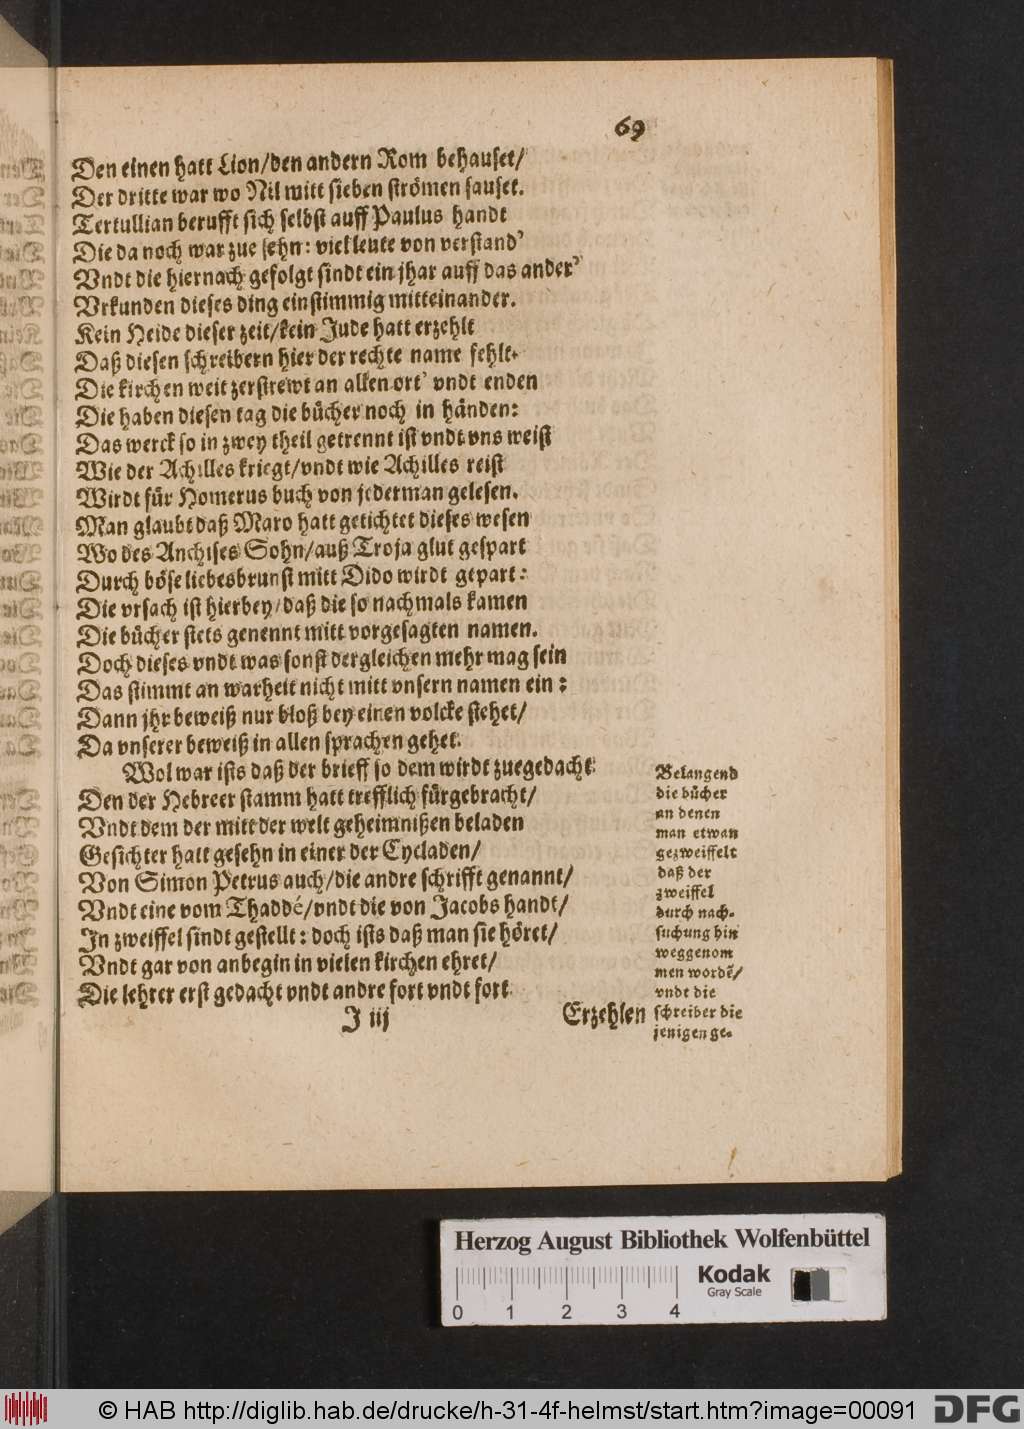 69
Den einen hatt Lion/den andern Rom behauset/
Der dritte war wo Nil mitt sieben strömen sauset.
Tertullian berufft sich selbst auff Paulus handt
Die da noch war zue sehn: viel leute von verstand'
Vndt die hiernach gefolgt sindt ein jhar auff das ander'
Vrkunden dieses ding einstimmig mitteinander.
Kein Heide dieser zeit/kein Jude hatt erzehlt
Daß diesen schreibern hier der rechte name fehlt.
Die kirchen weit zerstrewt an allen ort' vndt enden
Die haben diesen tag die bücher noch in händen:
Das werck so in zwey theil getrennt ist vndt vns weist
Wie der Achilles kriegt/vndt wie Achilles reist
Wirdt für Homerus buch von jederman gelesen.
Man glaubt daß Maro hatt getichtet dieses wesen
Wo des Anchises Sohn/auß Troja glut gespart
Durch böse liebesbrunst mitt Dido wirdt gepart:
Die vrsach ist hierbey/daß die so nachmals kamen
Die bücher stets genennt mitt vorgesagten namen.
Doch dieses vndt was sonst dergleichen mehr mag sein
Das stimmt an warheit nicht mitt vnsern namen ein:
Dann jhr beweiß nur bloß bey einen volcke stehet/
Da vnserer beweiß in allen sprachen gehet.
Wol war ists daß der brieff so dem wirdt zuegedacht
Den der Hebreer stamm hatt trefflich fürgebracht/
Vndt dem der mitt der welt geheimnißen beladen
Gesichter hatt gesehn in einer der Cycladen/
Von Simon Petrus auch/die andre schrifft genannt/
Vndt eine vom Thaddé/vndt die von Jacobs handt/
In zweiffel sindt gestellt: doch ists daß man sie höret/
Vndt gar von anbegin in vielen kirchen ehret/
Die lehrer erst gedacht vndt andre fort vndt fort
J iij
Erzehlen
Belangend
die bücher
an denen
man etwan
gezweiffelt
daß der
zweiffel
durch nach-
suchung hin
weggenom
men wordẽ/
vndt die
schreiber die
jenigen ge-
Herzog August Bibliothek Wolfenbüttel
Kodak
Gray Scale
0 1 2 3 4
© HAB http://diglib.hab.de/drucke/h-31-4f-helmst/start.htm?image=00091
DFG